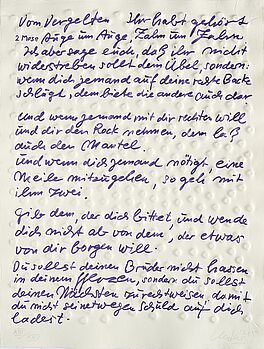 Vom Vergelten Ihr habt gehört
2 Mose Auge um Auge, Zahn um Zahn
Ich aber sage euch, daß ihr nicht
widerstreben sollt dem Übel, sondern:
wenn dich jemand auf deine rechte Backe
schlägt, dem biete die andere auch dar
Und wenn jemand mit dir rechten will
und dir den Rock nehmen, dem laß
auch den Mantel.
und wenn dich jemand nötigt, eine
Meile mitzugehen, so geh mit
ihm zwei.
Gib dem, der dich bittet und wende
dich nicht ab von dem, der etwas
von dir borgen will.
Du sollst deinen Bruder nicht hassen
in deinem Herzen, sondern du sollst
deinen Nächsten zurechtweisen, damit
du nicht seinetwegen Schuld auf dich
ladest.